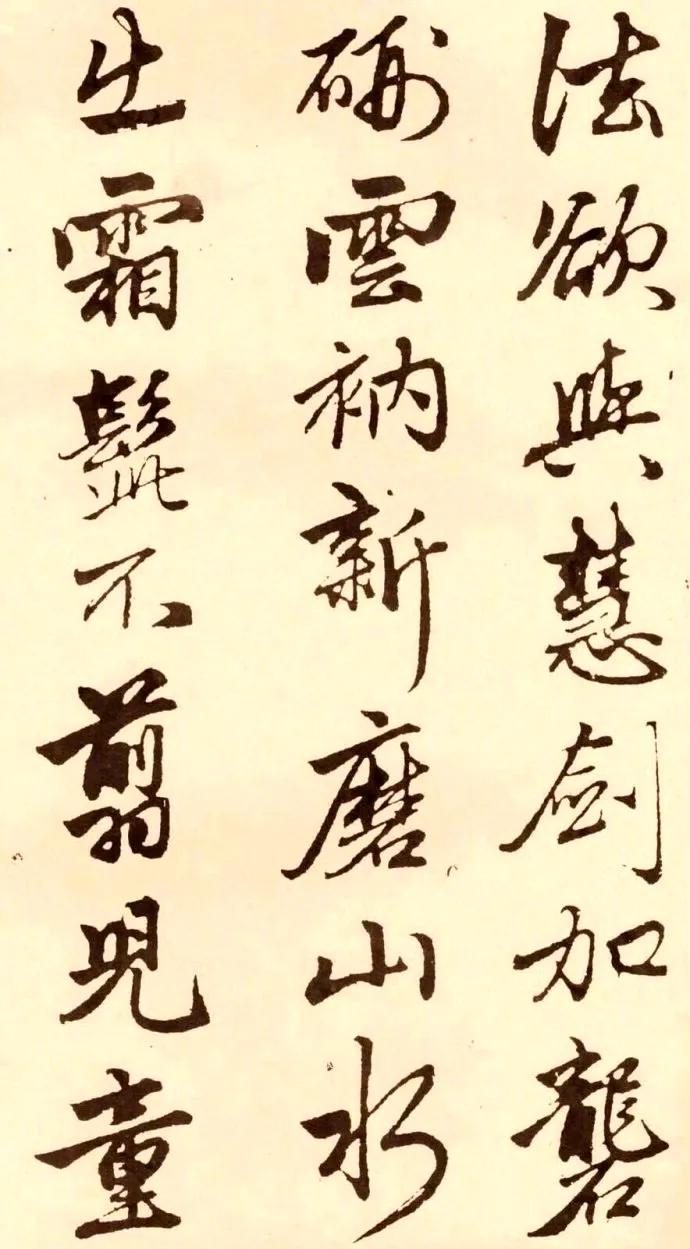 法欲與慧劒加礱
硎雲衲新磨山水
出霜髭不翦兒童